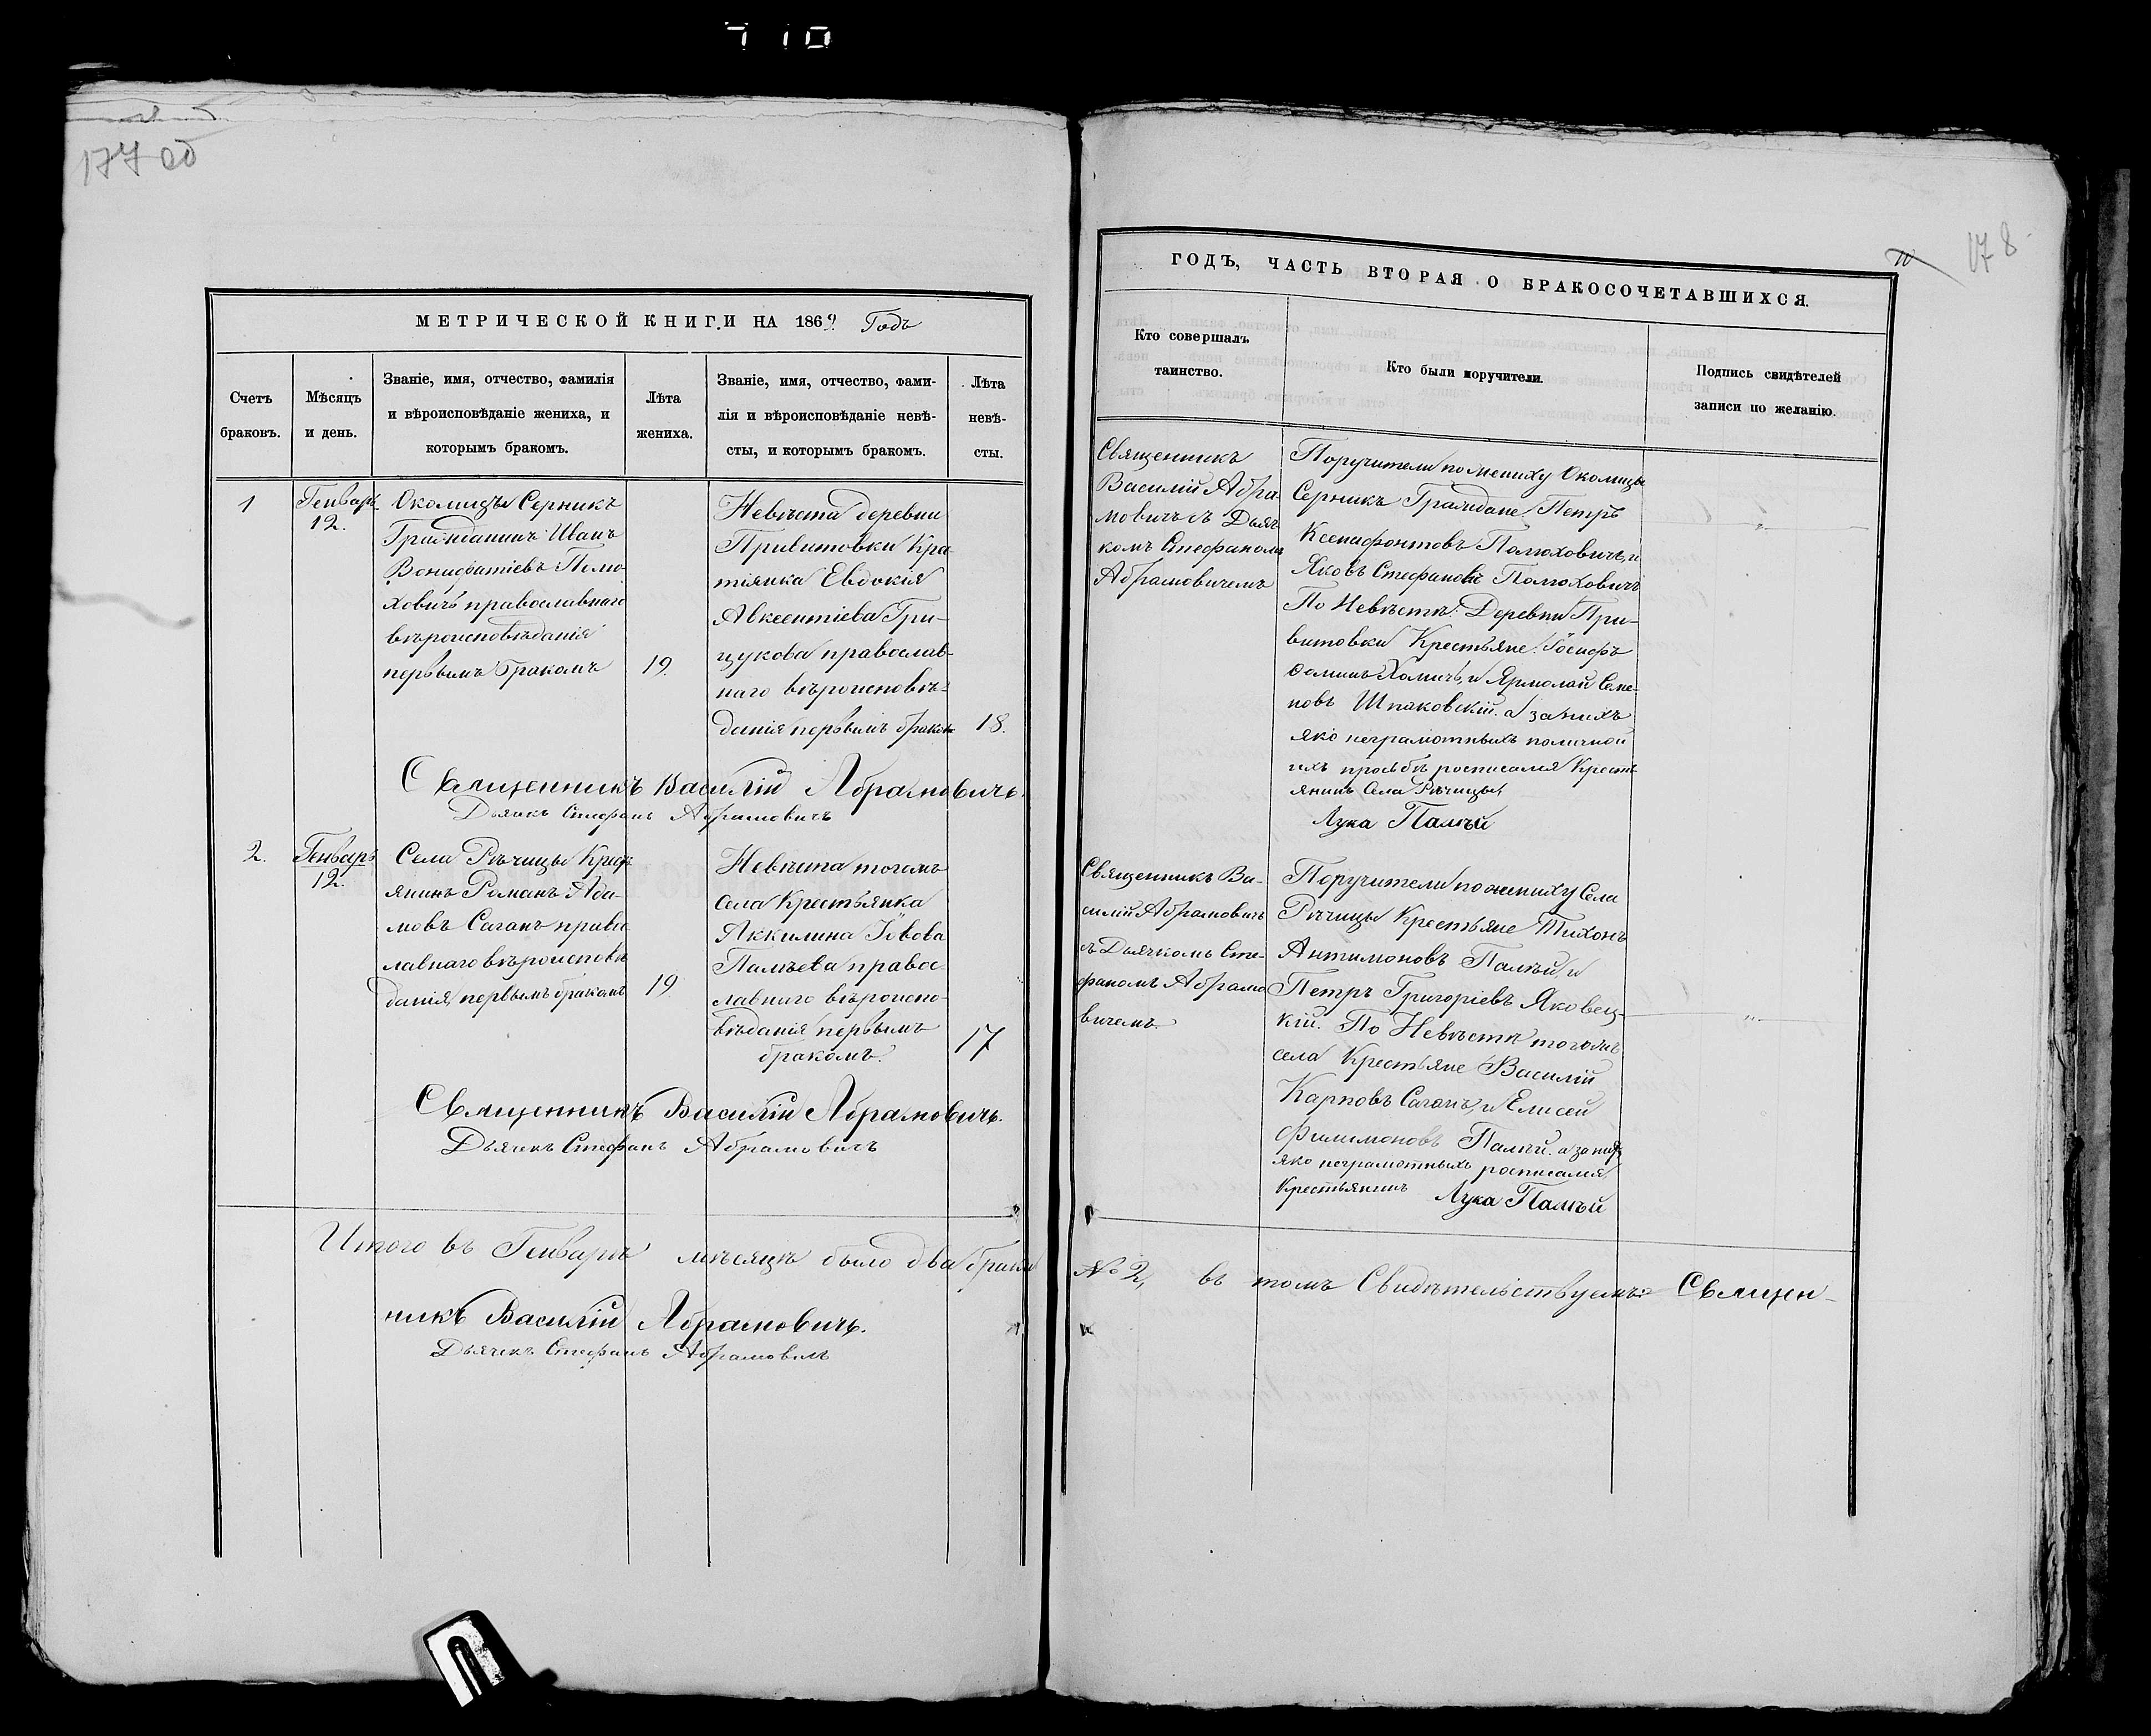 710
177 об
178
МЕТРИЧЕСКОЙ КНИГИ НА 1869. Годъ
Счетъ
браковъ.
Мѣсяцъ
и день.
Званіе, имя, отчество, фамилія
и вѣроисповѣданіе жениха, и
которымъ бракомъ.
Лѣта
жениха.
Званіе, имя, отчество, фами-
лія и вѣроисповѣданіе невѣ-
сты, и которымъ бракомъ.
Лѣта
невѣ-
сты.
1
Генварь
12.
Околицы Серникъ
Гражданинъ Иванъ
Вонифатіевъ Полю-
ховичъ православнаго
вѣроисповѣданія
первымъ бракомъ
19.
Невѣста деревни
Привитовки Кре-
тіянка Евдокія
Авксентіева Гри-
цукова православ-
наго вѣроисповѣ-
данія первымъ бракомъ
18.
Священникъ Василій Абрамовичъ.
Дьячекъ Стефанъ Абрамовичъ
2.
Генварь
12.
Села Рѣчицы Крест
янинъ Романъ Ада-
мовъ Саганъ право
лавнаго вѣроисповѣ
данія, первымъ бракомъ
19
Невѣста тогожъ
села Крестьянка
Аккилина Іовова
Палѣева правос
лавнаго вѣроиспо-
вѣданія первымъ
бракомъ.
17
Священникъ Василій Абрамовичъ.
Дьячекъ Стефанъ Абрамовичъ
Итого въ Генварѣ мѣсяцѣ было два брака
никъ Василій Абрамовичъ.
Дьячекъ Стефанъ Абрамовичъ
ГОДЪ, ЧАСТЬ ВТОРАЯ О БРАКОСОЧЕТАВШИХСЯ.
Кто совершалъ
таинство.
Кто были поручители.
Подпись свидѣтелей
записи по желанію.
Священникъ
Василій Абра-
мовичъ съ Дьяч-
комъ Стефаномъ
Абрамовичемъ
Поручители по жениху Околицы
Серникъ Граждане Петръ
Ксенафонтовъ Полюховичъ, и
Яковъ Стефановъ Полюховичъ
По Невѣстѣ: Деревни При-
витовки Крестьяне: Іосифъ
Хомичъ, и Ярмолай Семе-
новъ Шпаковскій. а за нихъ
яко неграмотныхъ по личной
ихъ просьбѣ росписался Крест
янинъ Села Рѣчицы,
Лука Палѣй
Священникъ Ва-
силій Абрамовичъ
съ Дьячкомъ Сте-
фаномъ Абрамо
вичемъ.
Поручители по жениху Села
Рѣчицы Крестьяне Тихонъ
Антимоновъ Палѣй, и
Петръ Григоріевъ Яковец-
кій. По Невѣстѣ тогожъ
села Крестьяне Василій
Карповъ Саганъ, и Елисей
Филимоновъ Палѣй. а за нихъ
яко неграмотныхъ росписался
Крестьянинъ Лука Палѣй
№ 2, въ томъ Свидѣтельствуемъ: Священ-